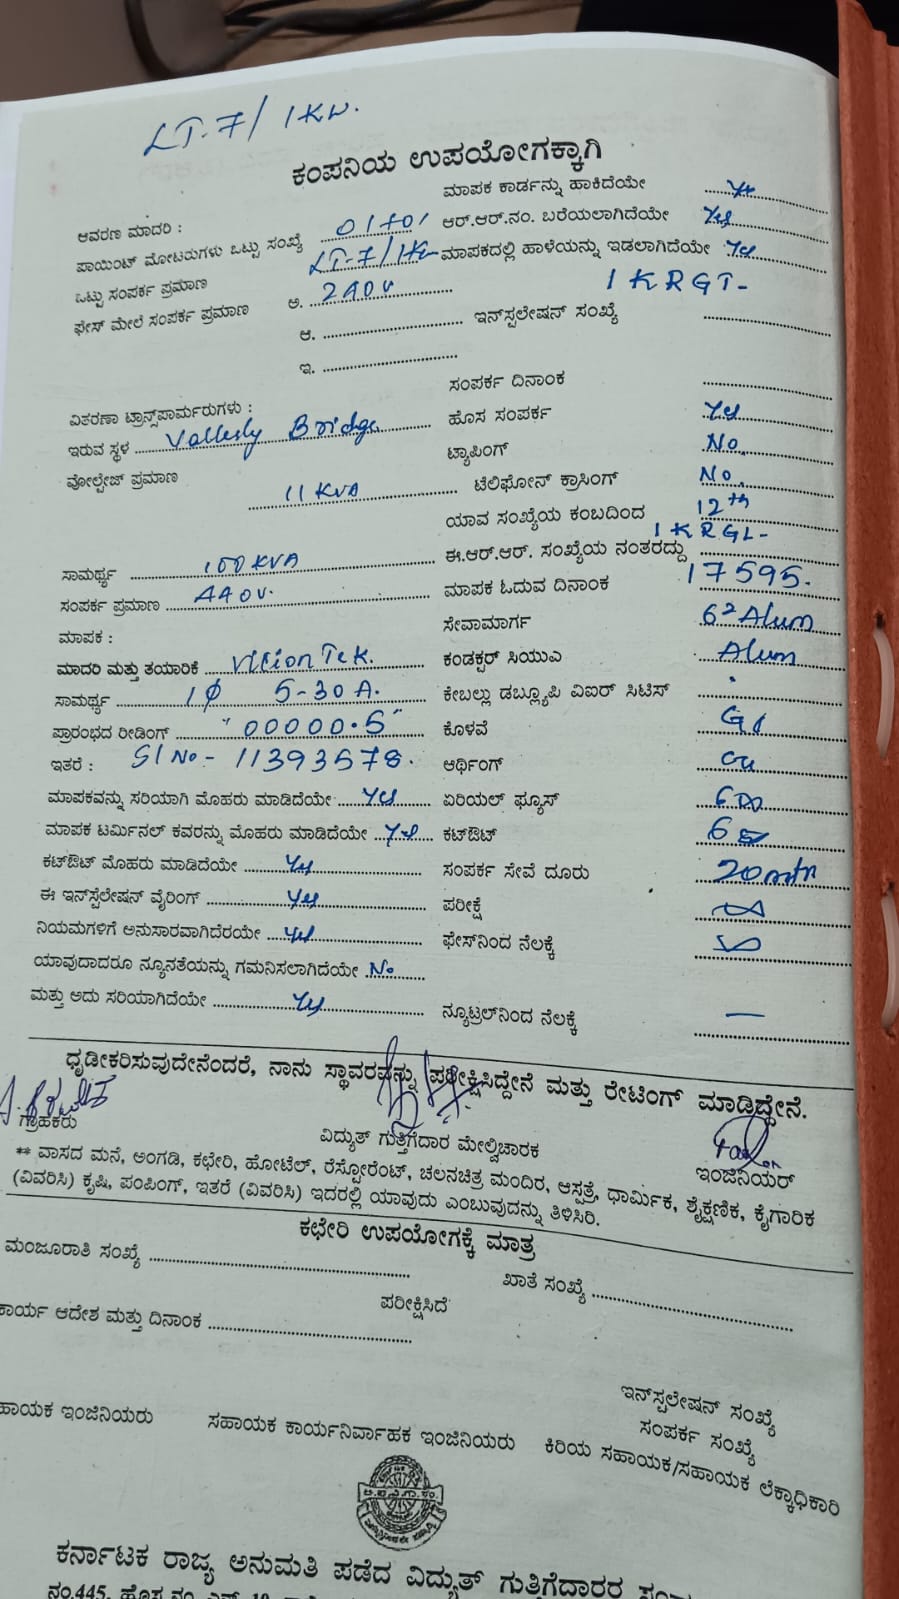 LT-7/ 1KW.
ಕಂಪನಿಯ ಉಪಯೋಗಕ್ಕಾಗಿ
ಆವರಣ ಮಾದರಿ :
ಪಾಯಿಂಟ್ ಮೋಟರುಗಳು ಒಟ್ಟು ಸಂಖ್ಯೆ 01+01
ಒಟ್ಟು ಸಂಪರ್ಕ ಪ್ರಮಾಣ LT-7/1KW
ಫೇಸ್ ಮೇಲೆ ಸಂಪರ್ಕ ಪ್ರಮಾಣ ಅ. 240v
ಆ.
ಇ.
ವಿತರಣಾ ಟ್ರಾನ್ಸ್‌ಪಾರ್ಮರುಗಳು :
ಇರುವ ಸ್ಥಳ Bridge
ವೋಲ್ಟೇಜ್ ಪ್ರಮಾಣ
11 KVA
ಸಾಮರ್ಥ್ಯ 100 KVA
ಸಂಪರ್ಕ ಪ್ರಮಾಣ 440v.
ಮಾಪಕ :
ಮಾದರಿ ಮತ್ತು ತಯಾರಿಕೆ VisionTek.
ಸಾಮರ್ಥ್ಯ 1φ 5-30A.
ಪ್ರಾರಂಭದ ರೀಡಿಂಗ್ "00000.5"
ಇತರೆ : Sl No- 11393578.
ಮಾಪಕವನ್ನು ಸರಿಯಾಗಿ ಮೊಹರು ಮಾಡಿದೆಯೇ Yes
ಮಾಪಕ ಟರ್ಮಿನಲ್ ಕವರನ್ನು ಮೊಹರು ಮಾಡಿದೆಯೇ Yes
ಕಟ್‌ಔಟ್ ಮೊಹರು ಮಾಡಿದೆಯೇ Yes
ಈ ಇನ್‌ಸ್ಟಲೇಷನ್ ವೈರಿಂಗ್ Yes
ನಿಯಮಗಳಿಗೆ ಅನುಸಾರವಾಗಿದೆರಯೇ Yes
ಯಾವುದಾದರೂ ನ್ಯೂನತೆಯನ್ನು ಗಮನಿಸಲಾಗಿದೆಯೇ No
ಮತ್ತು ಅದು ಸರಿಯಾಗಿದೆಯೇ Yes
ಮಾಪಕ ಕಾರ್ಡನ್ನು ಹಾಕಿದೆಯೇ Yes
ಆರ್.ಆರ್.ನಂ. ಬರೆಯಲಾಗಿದೆಯೇ Yes
ಮಾಪಕದಲ್ಲಿ ಹಾಳೆಯನ್ನು ಇಡಲಾಗಿದೆಯೇ Yes
1KRGT-
ಇನ್‌ಸ್ಪಲೇಷನ್ ಸಂಖ್ಯೆ
ಸಂಪರ್ಕ ದಿನಾಂಕ
ಹೊಸ ಸಂಪರ್ಕ Yes
ಟ್ಯಾಪಿಂಗ್ No.
ಟೆಲಿಫೋನ್ ಕ್ರಾಸಿಂಗ್ No.
ಯಾವ ಸಂಖ್ಯೆಯ ಕಂಬದಿಂದ 12th
1KRGL-
ಈ.ಆರ್.ಆರ್. ಸಂಖ್ಯೆಯ ನಂತರದ್ದು
ಮಾಪಕ ಓದುವ ದಿನಾಂಕ 17595.
ಸೇವಾಮಾರ್ಗ 6² Alum
ಕಂಡಕ್ಟರ್ ಸಿಯುಎ Alum
ಕೇಬಲ್ಲು ಡಬ್ಲ್ಯೂಪಿ ವಿಐರ್ ಸಿಟಿಸ್
ಕೊಳವೆ GI
ಆರ್ಥಿಂಗ್ cu
ಏರಿಯಲ್ ಫ್ಯೂಸ್
ಕಟ್‌ಔಟ್
ಸಂಪರ್ಕ ಸೇವೆ ದೂರು 20mtr
ಪರೀಕ್ಷೆ
ಫೇಸ್‌ನಿಂದ ನೆಲಕ್ಕೆ
ನ್ಯೂಟ್ರಲ್‌ನಿಂದ ನೆಲಕ್ಕೆ —
ಧೃಡೀಕರಿಸುವುದೇನೆಂದರೆ, ನಾನು ಸ್ಥಾವರವನ್ನು ಪರೀಕ್ಷಿಸಿದ್ದೇನೆ ಮತ್ತು ರೇಟಿಂಗ್ ಮಾಡಿದ್ದೇನೆ.
ಗ್ರಾಹಕರು ವಿದ್ಯುತ್ ಗುತ್ತಿಗೆದಾರ ಮೇಲ್ವಿಚಾರಕ ಇಂಜಿನಿಯರ್
** ವಾಸದ ಮನೆ, ಅಂಗಡಿ, ಕಛೇರಿ, ಹೋಟೆಲ್, ರೆಸ್ಟೋರೆಂಟ್, ಚಲನಚಿತ್ರ ಮಂದಿರ, ಆಸ್ಪತ್ರೆ, ಧಾರ್ಮಿಕ, ಶೈಕ್ಷಣಿಕ, ಕೈಗಾರಿಕ
(ವಿವರಿಸಿ) ಕೃಷಿ, ಪಂಪಿಂಗ್, ಇತರೆ (ವಿವರಿಸಿ) ಇದರಲ್ಲಿ ಯಾವುದು ಎಂಬುವುದನ್ನು ತಿಳಿಸಿರಿ.
ಕಛೇರಿ ಉಪಯೋಗಕ್ಕೆ ಮಾತ್ರ
ಮಂಜೂರಾತಿ ಸಂಖ್ಯೆ ಖಾತೆ ಸಂಖ್ಯೆ
ಪರೀಕ್ಷಿಸಿದೆ
ಕಾರ್ಯ ಆದೇಶ ಮತ್ತು ದಿನಾಂಕ
ಇನ್‌ಸ್ಪಲೇಷನ್ ಸಂಖ್ಯೆ
ಸಂಪರ್ಕ ಸಂಖ್ಯೆ
ಹಾಯಕ ಇಂಜಿನಿಯರು ಸಹಾಯಕ ಕಾರ್ಯನಿರ್ವಾಹಕ ಇಂಜಿನಿಯರು ಕಿರಿಯ ಸಹಾಯಕ/ಸಹಾಯಕ ಲೆಕ್ಕಾಧಿಕಾರಿ
ಕರ್ನಾಟಕ ರಾಜ್ಯ ಅನುಮತಿ ಪಡೆದ ವಿದ್ಯುತ್ ಗುತ್ತಿಗೆದಾರರ
ನಂ.445, ಹೊಸ ನಂ.